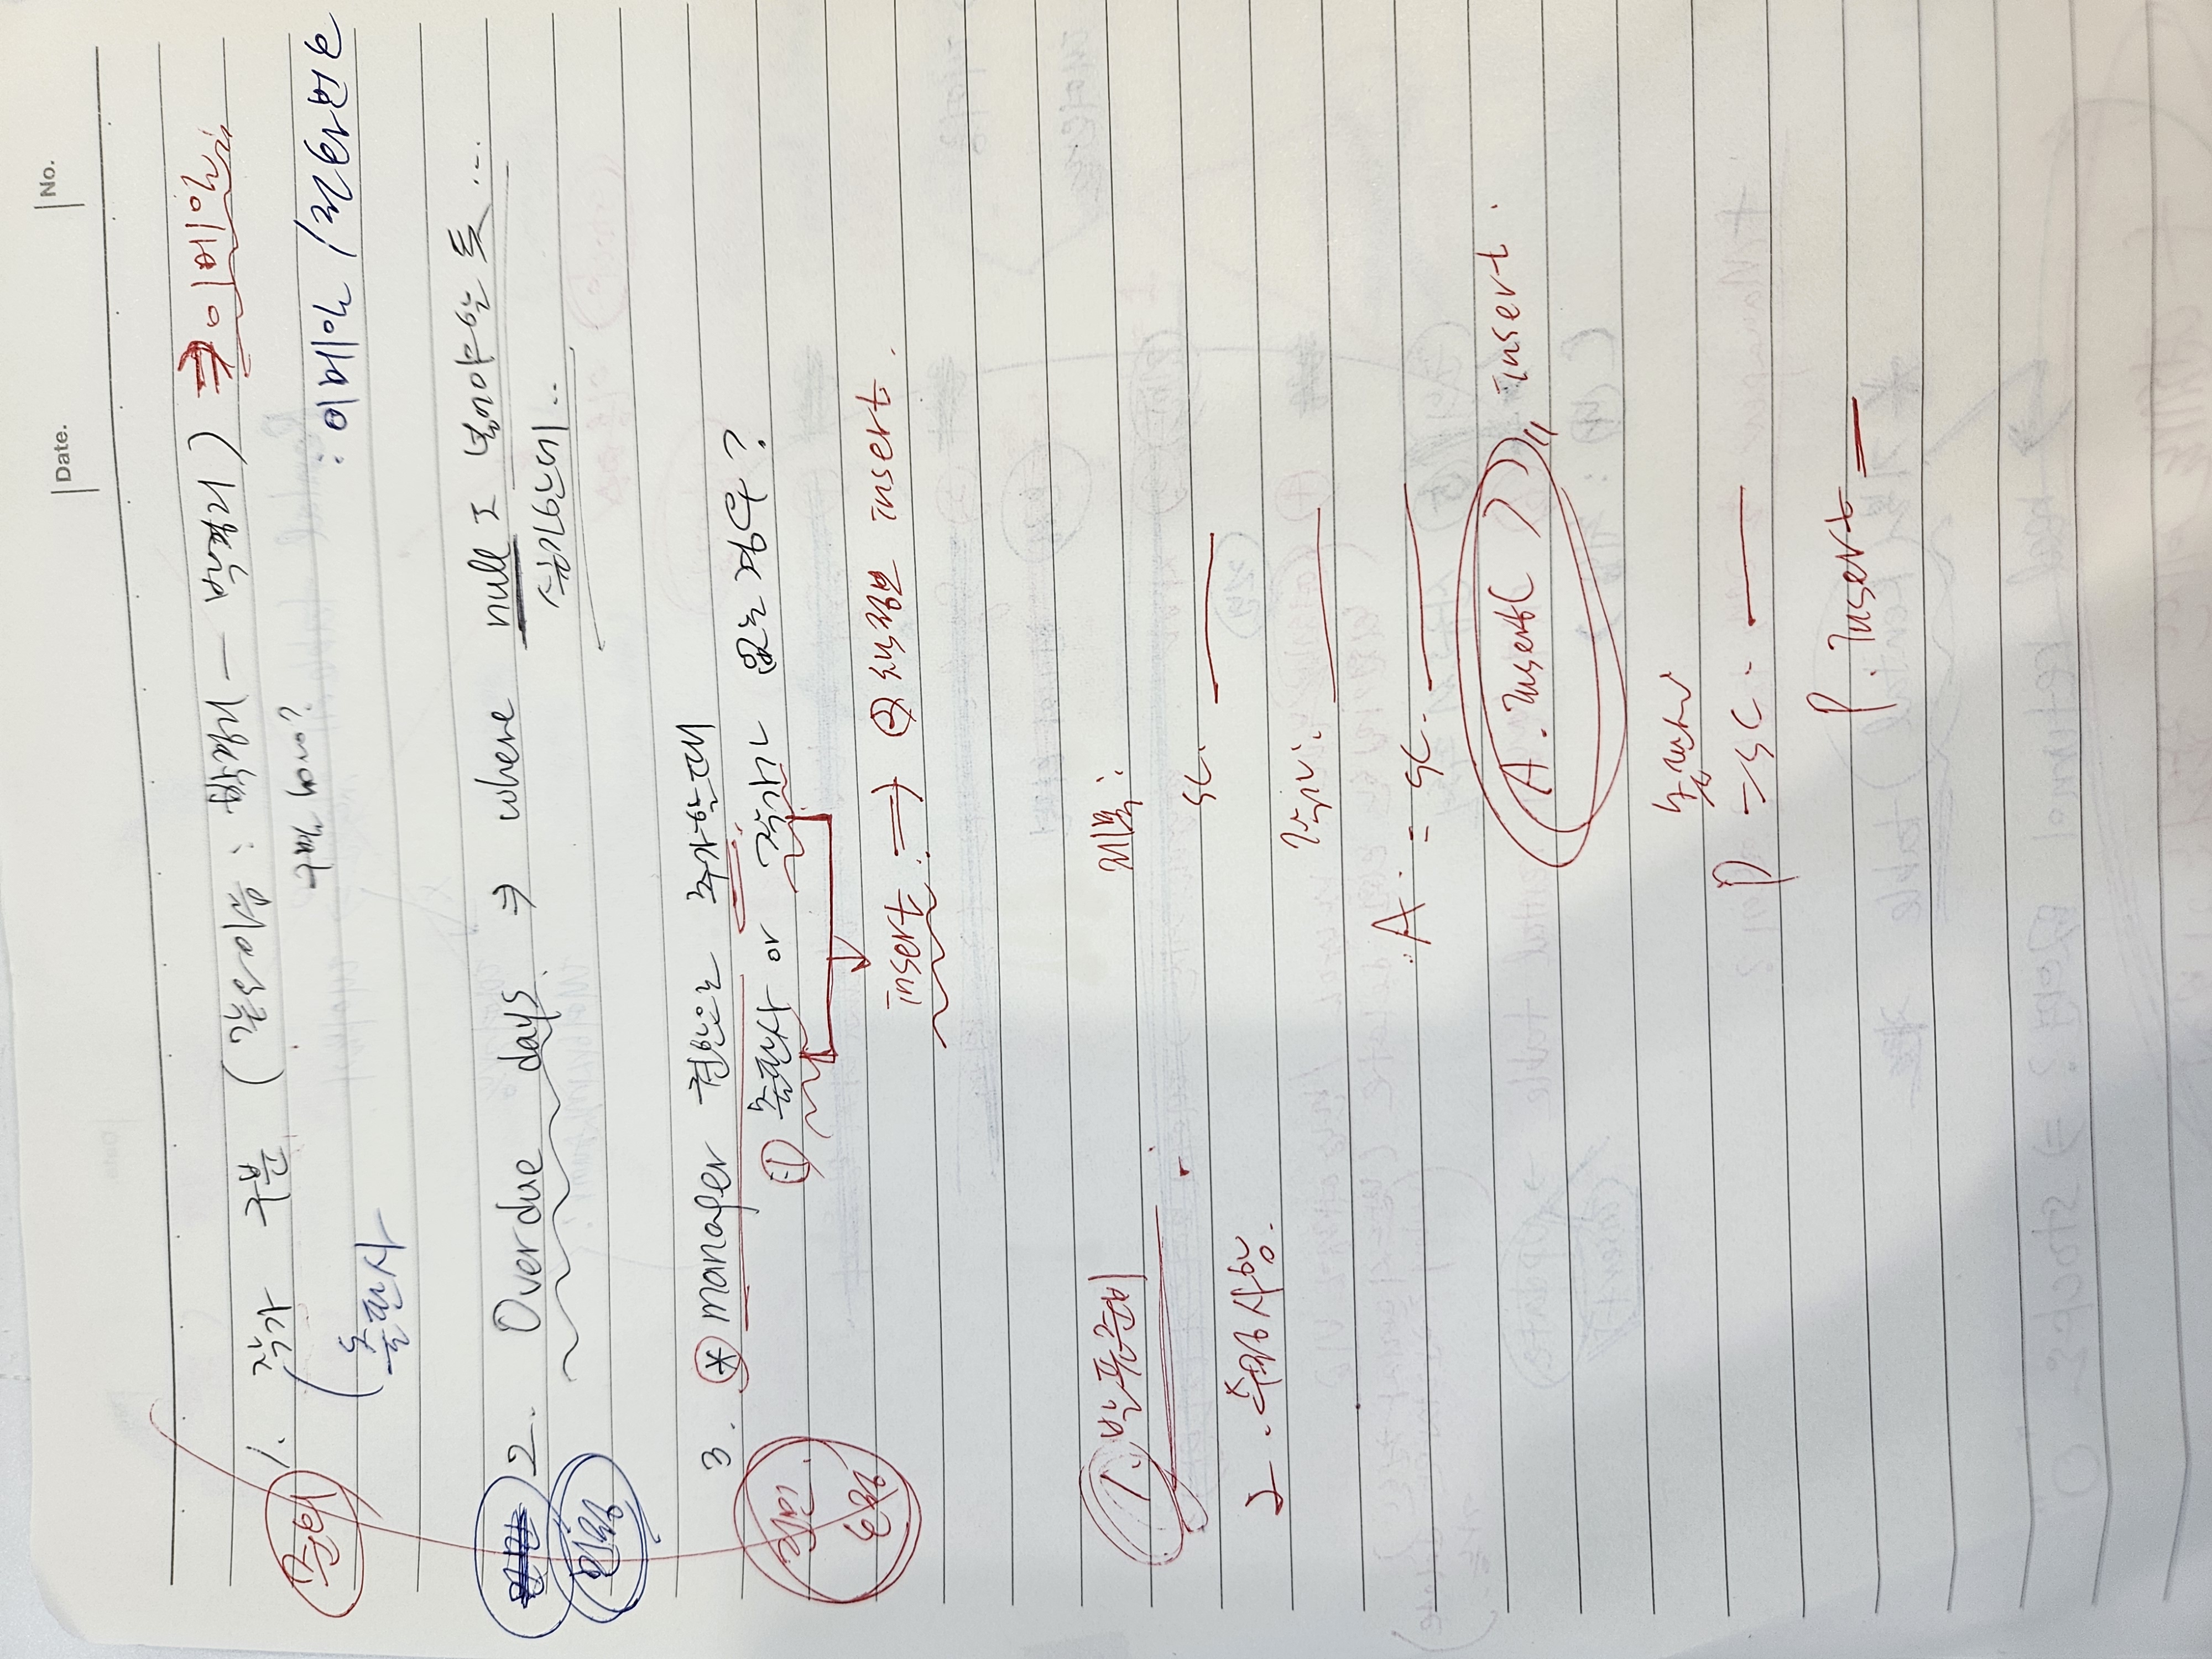 Date. No.
1. 작가 구분 (같은이름 : 박경리 - 박경리) ⇒ 이메일
구별 방법?
준희
출판사
: 이메일 / 전화번호
2. Overdue days. ⇒ where null도 넣어야할 듯...
민정
3. * manager 권한으로 추가할때
① 출판사 or 작가가 없는 경우?
insert. ⇒ ② 책정보 insert.
1. 발표준비
제목:
sc.
2. 수정사항.
작가:
A = sc.
A. Insert( ) insert.
출판사
P = sc.
P. Insert